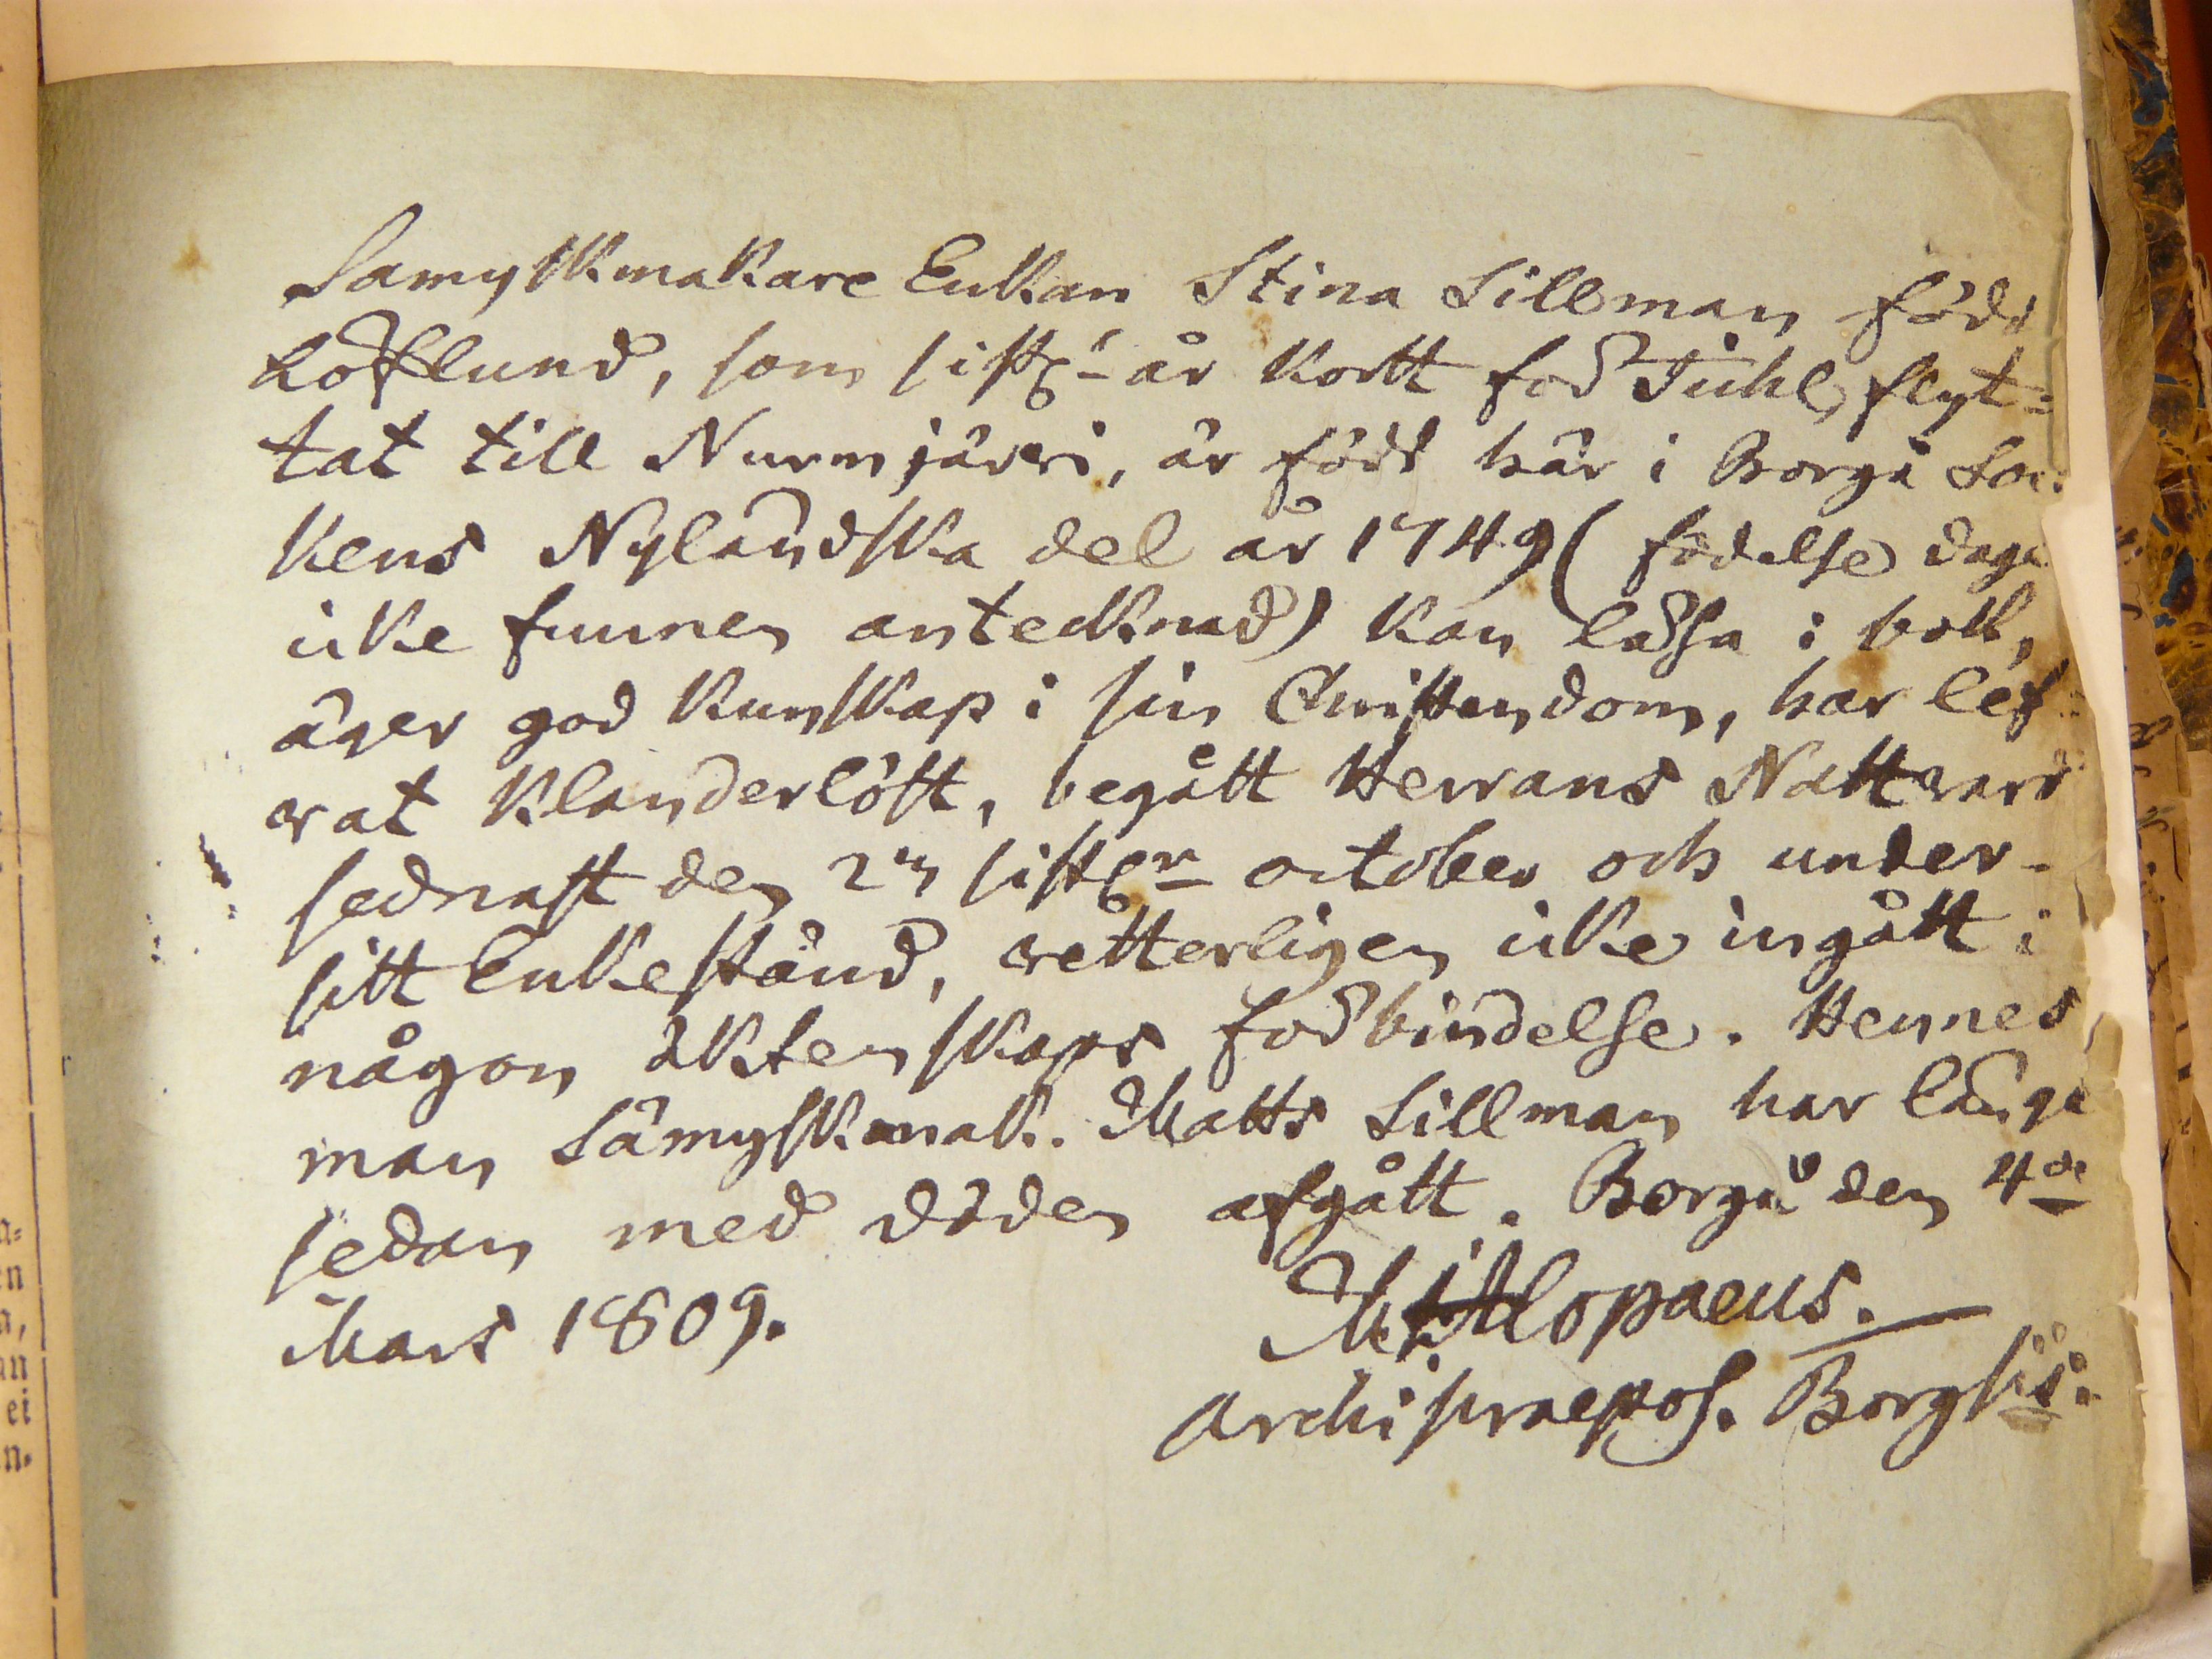 Samyskmakare Enkan Stina Sillman född
Löflund, som sistl. år kort för Juhl, flyt=
tat till Nurmjärvi, är född här i Borgå Soc=
kens Nylandska del år 1749 (födelse dage
icke funnen antecknad) kan läsa i bok,
äger god kunskap i sin Christendom, har lef=
vat klanderlöst, begått Herrans Nattvard
sednast den 2 sistl. october och under
sitt Enkestånd, vetterligen icke ingått i
någon äktenskaps förbindelse. Hennes
man Sämyskmak. Matts Sillman har länge
sedan med döden afgått. Borgå den 4de
Mars 1809.
M. J. Alopaeus.
Archipraepos. Borgsis.
n=
en
n,
an
ei
n.